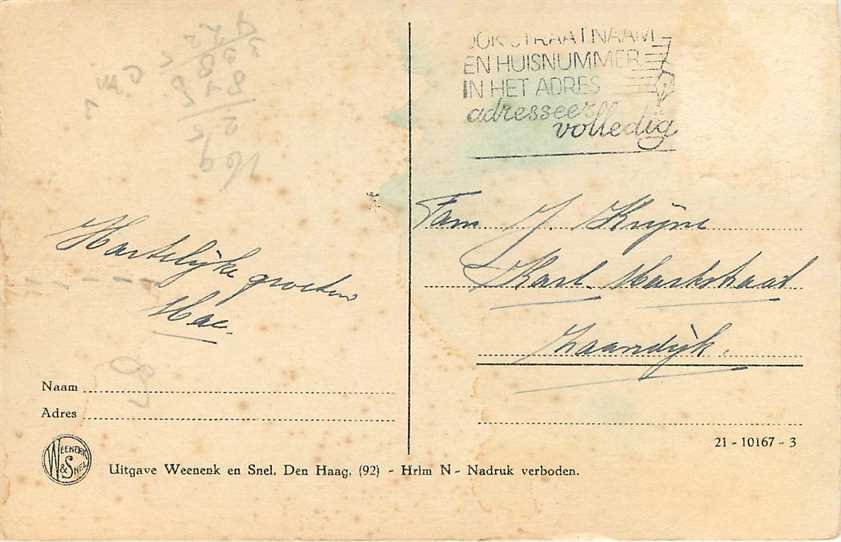 OOK STRAATNAAM
EN HUISNUMMER
IN HET ADRES
adresseer
volledig
Hartelijke groeten
Fam J. Kuijne
Karl Markstraat
Zaandijk.
Naam
Adres
21 - 10167 - 3
WEENENK & SNEL
Uitgave Weenenk en Snel, Den Haag, (92) - Hrlm N - Nadruk verboden.